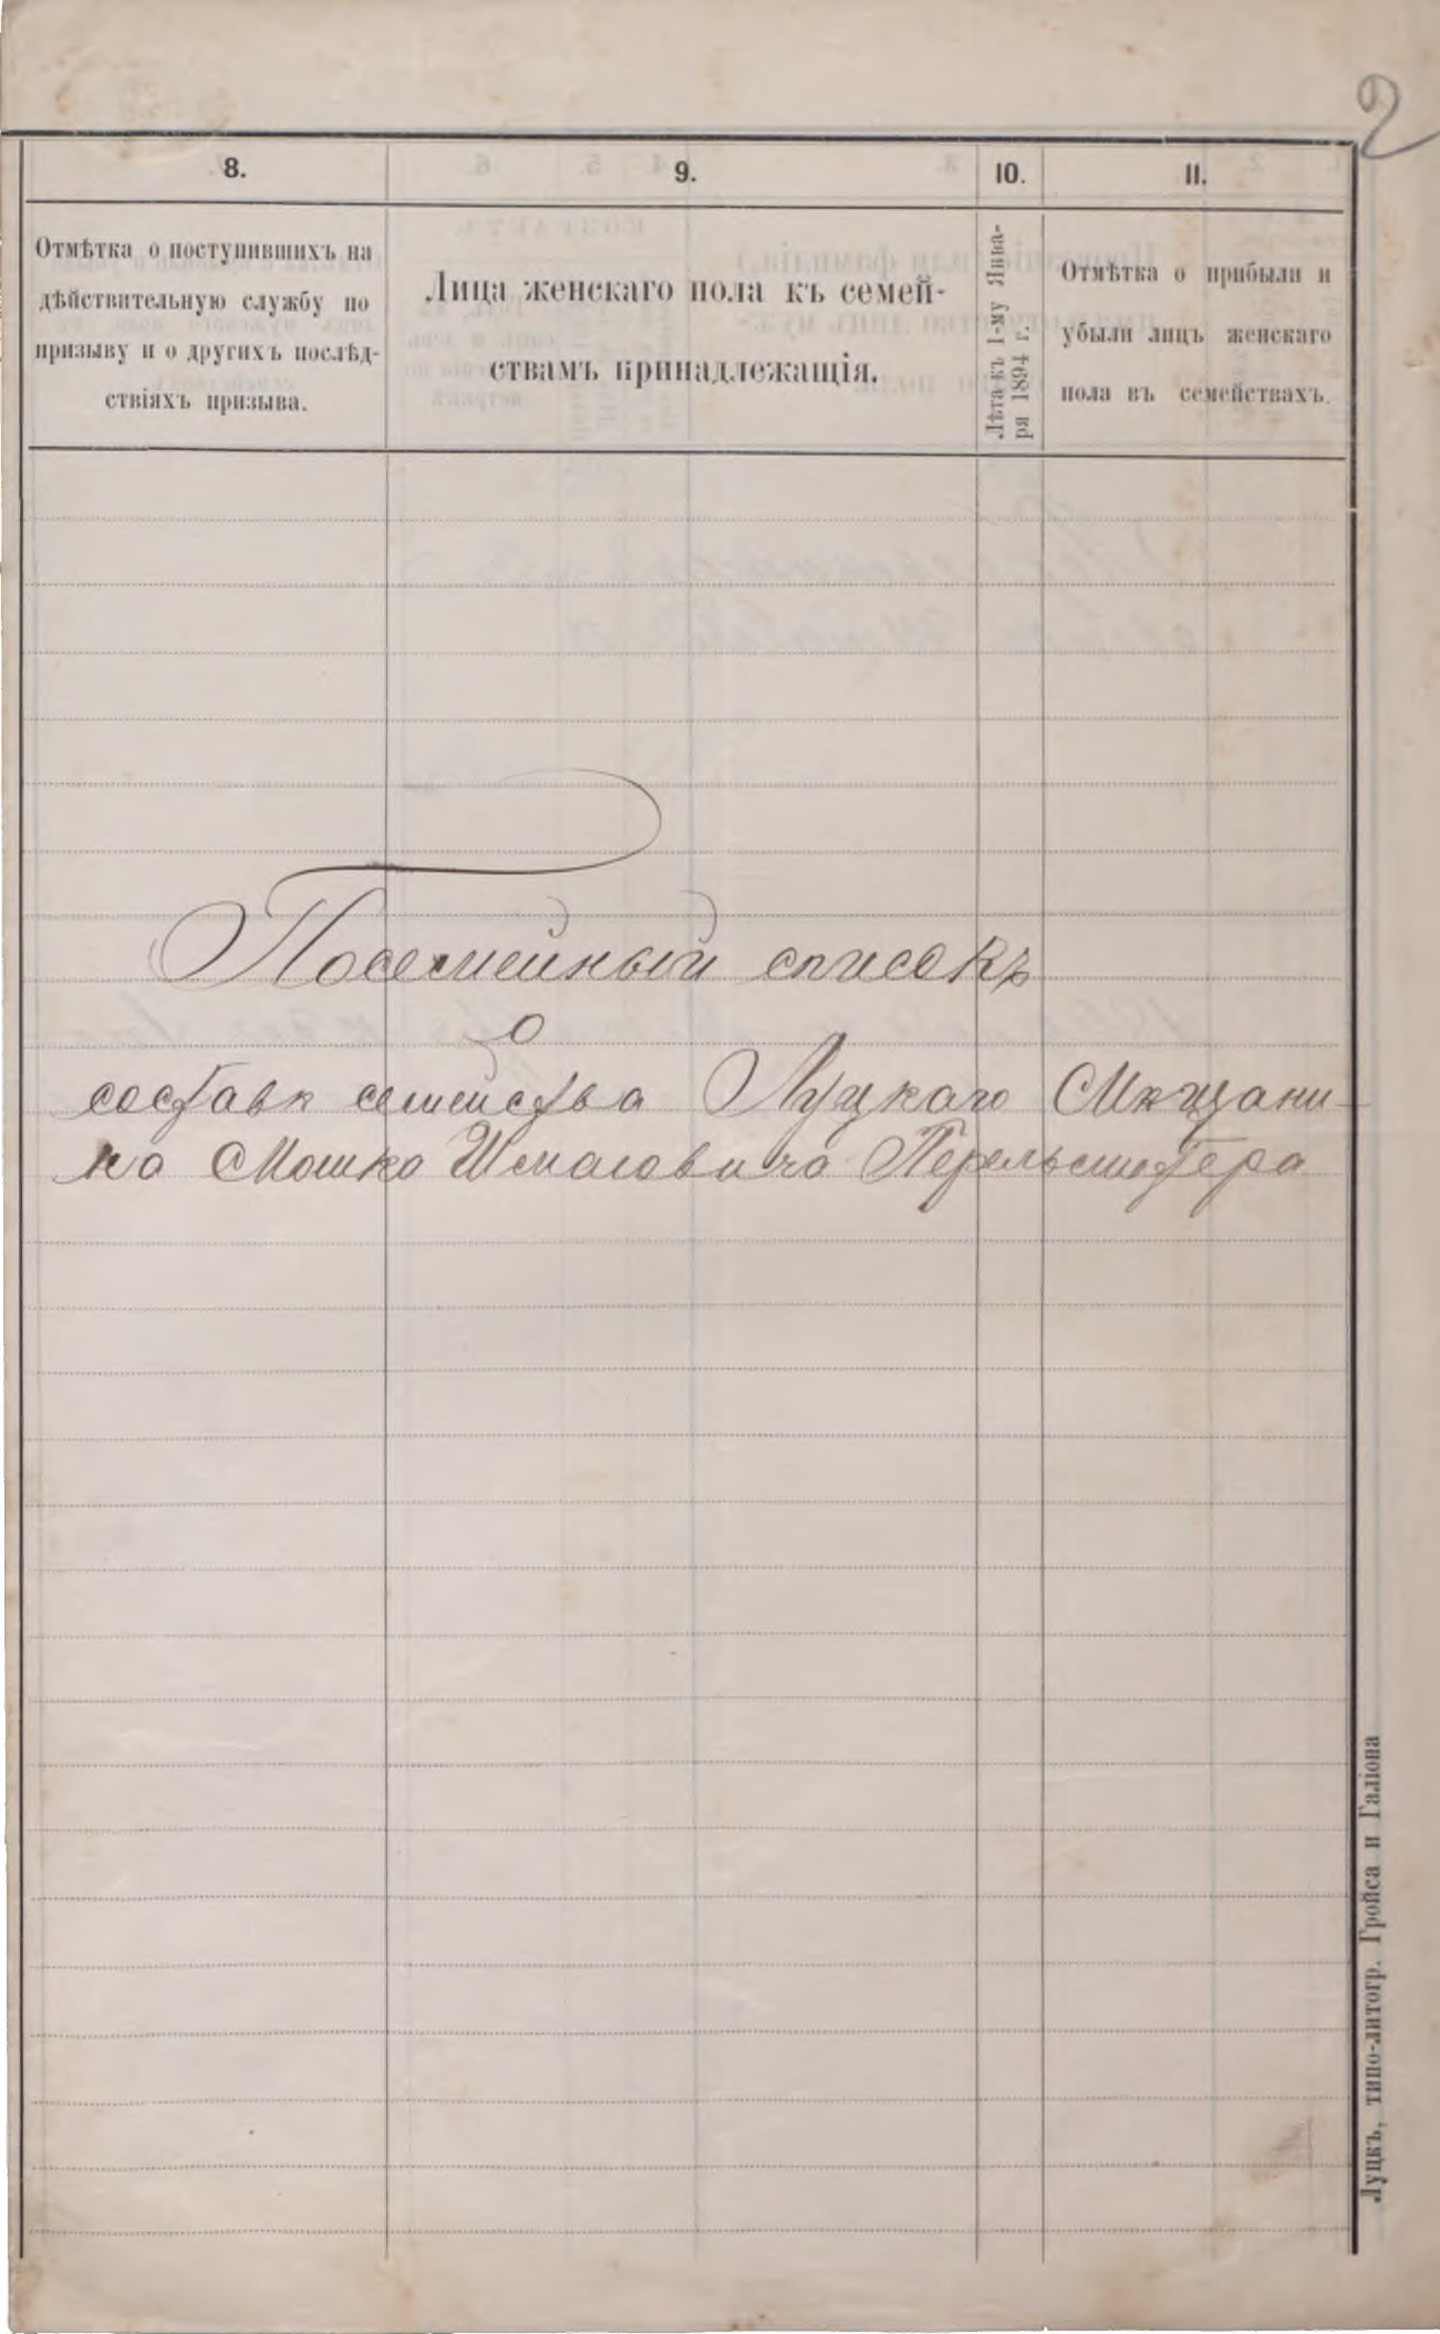 2
8.
9.
10.
11.
Отмѣтка о поступившихъ на
дѣйствительную службу по
призыву и о другихъ послѣд-
ствіяхъ призыва.
Лица женскаго пола къ семей-
ствамъ принадлежащія.
Лѣта къ 1-му Янва-
ря 1894 г.
Отмѣтка о прибыли и
убыли лицъ женскаго
пола въ семействахъ.
Посемейный списокъ
о
составѣ семейства Луцкаго Мѣщани-
на Мошка Шмаговича Перельмутера
Луцкъ, типо-литогр. Гройса и Галіона